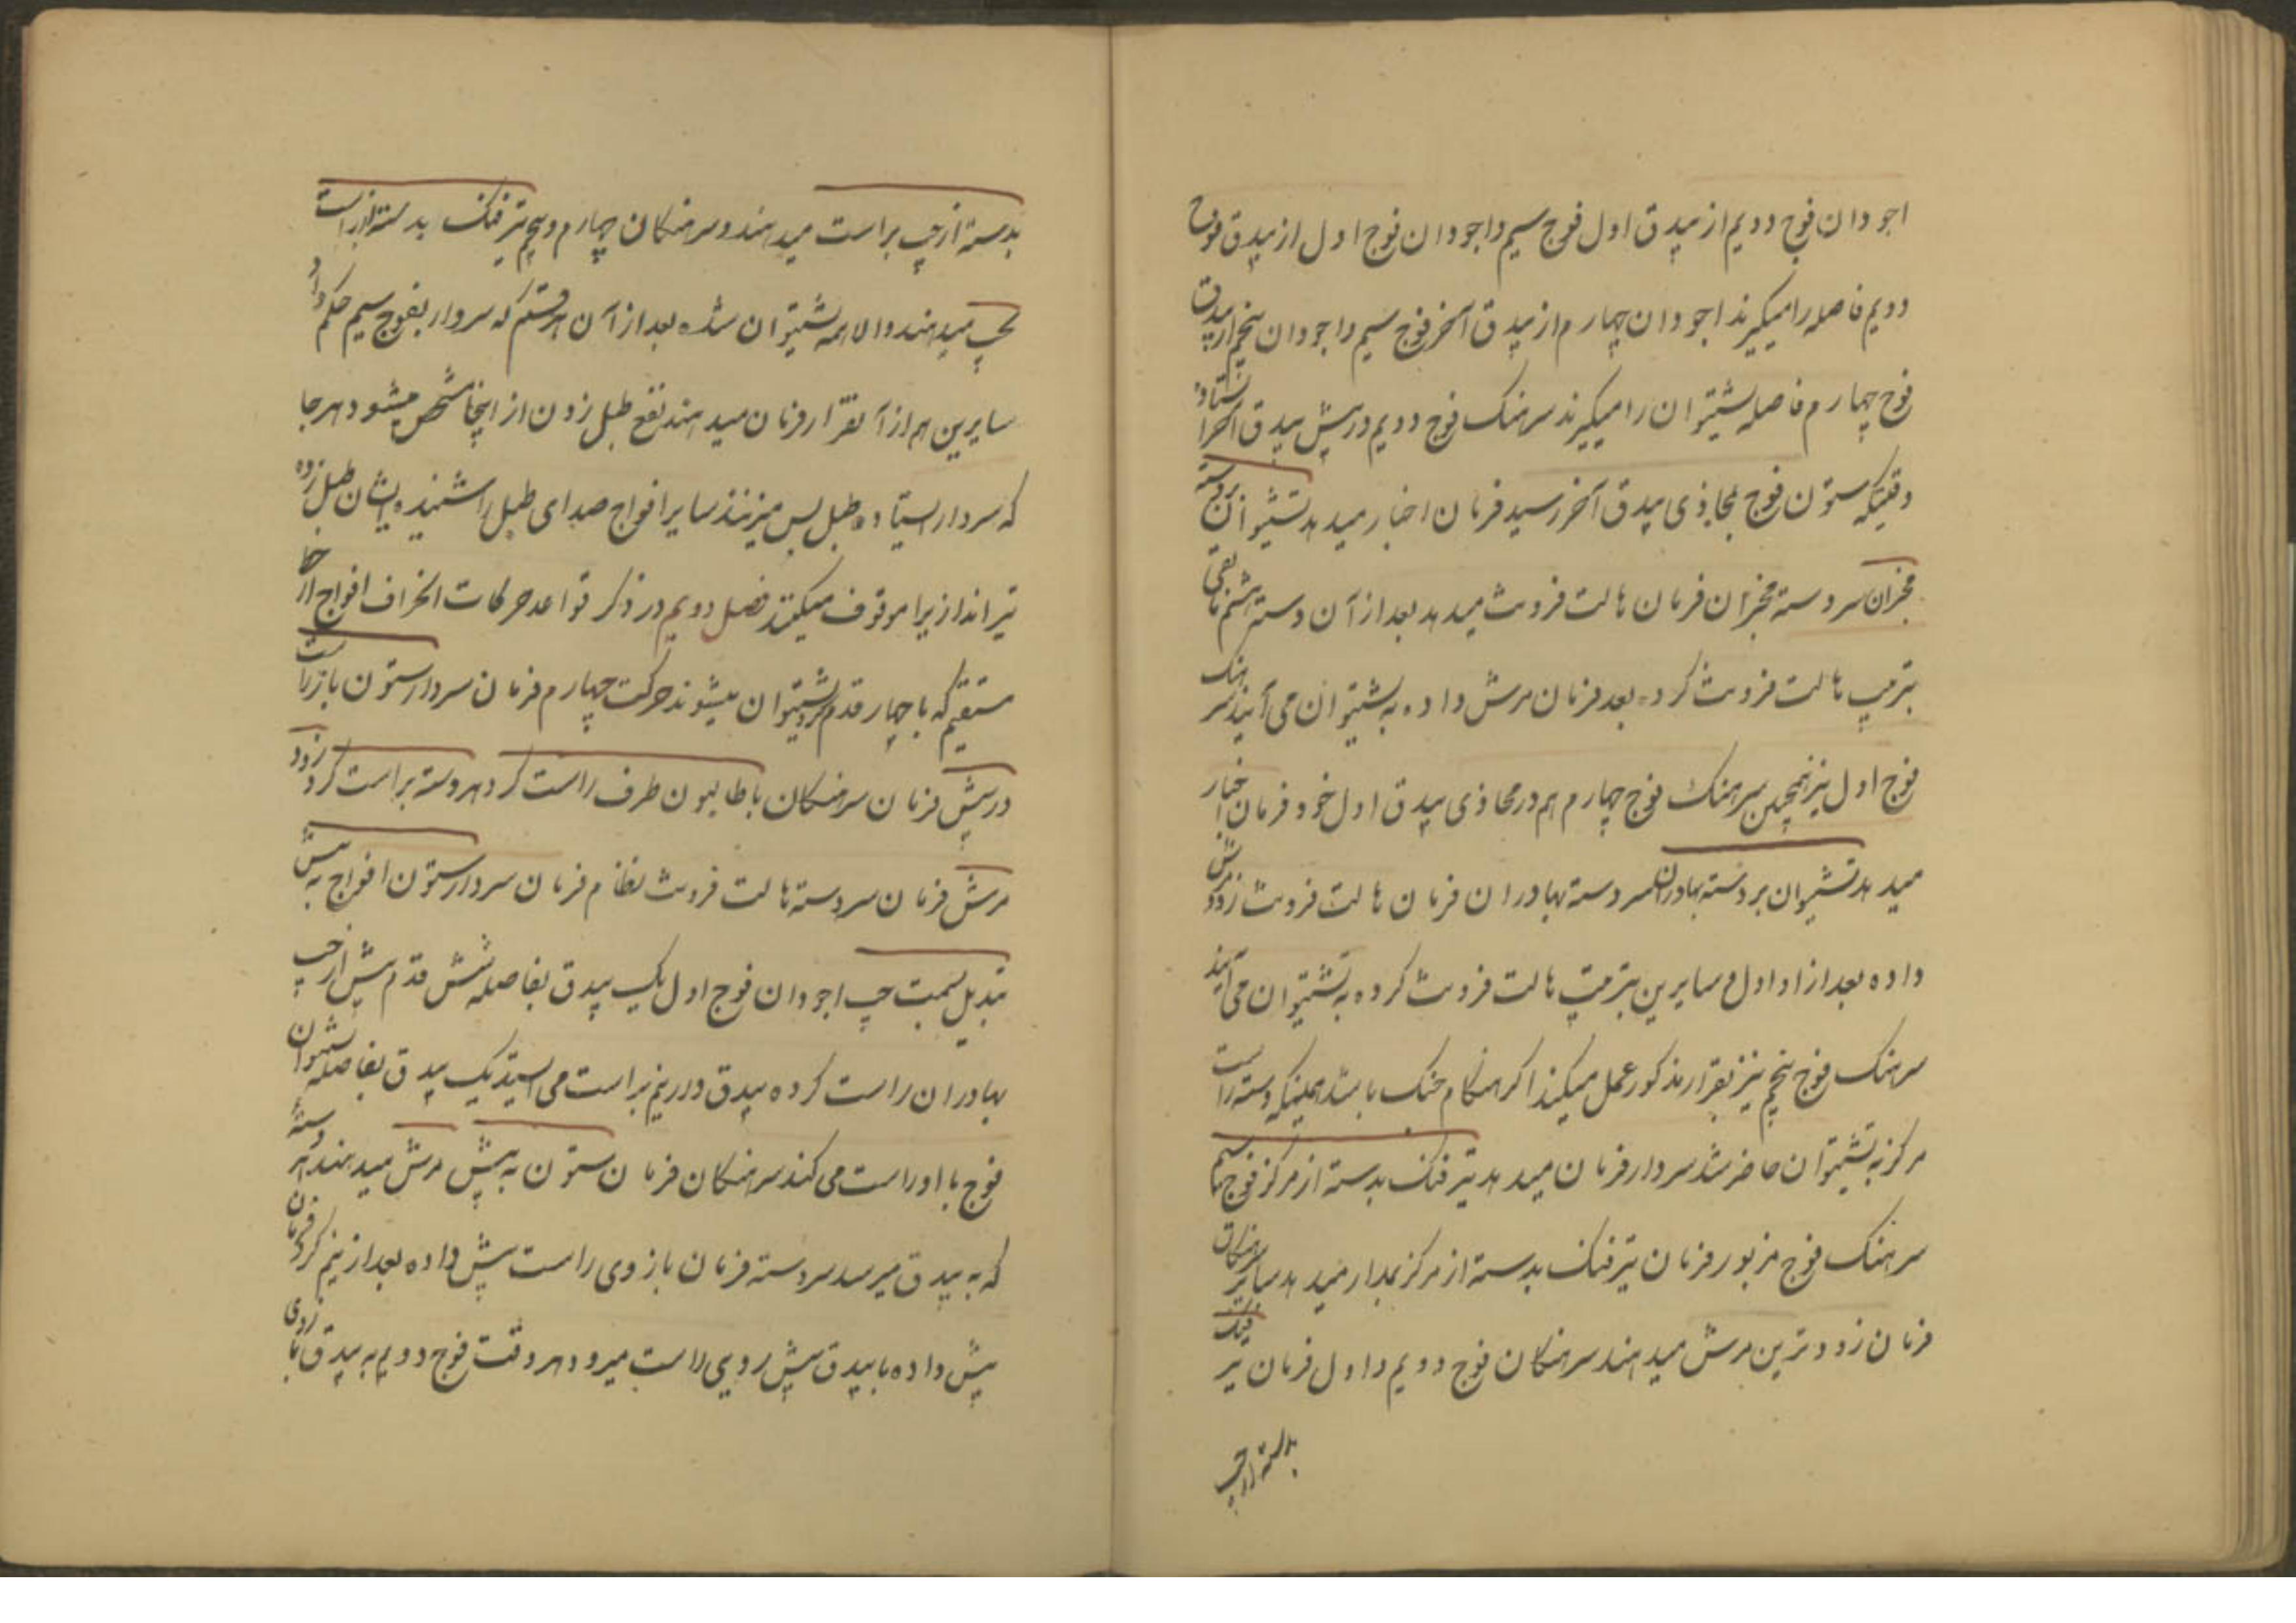 اجودان فوج دویم از بیدق اول فوج سیم و اجودان فوج اول از بیدق فوج
دویم فاصله را میگیرند اجودان چهارم از بیدق آخر فوج سیم و اجودان پنجم از بیدق
فوج چهارم فاصله پشتیوان را میگیرند سرهنک فوج دویم در پیش بیدق آخر ایستاده
وقتیکه ستون فوج بمحاذی بیدق آخر رسید فرمان اخبار میدهد پشتیوان بر دسته
مخبران سردسته مخبران فرمان هالت فرونت میدهد بعد از آن دسته هشتم باقی
بترتیب هالت فرونت کرده بعد فرمان مرش داده به پشتیوان می آیند سرهنک
فوج اول نیز همچنین سرهنک فوج چهارم هم در محاذی بیدق اول خود فرمان اخبار
میدهد پشتیوان بر دسته بهادران سردسته بهادران فرمان هالت فرونت زود مرش
داده بعد از او اول و سایرین بترتیب هالت فرونت کرده به پشتیوان می آیند
سرهنک فوج پنجم نیز بقرار مذکور عمل میکند اکر هنکام جنک باشد همینکه دسته راست
مرکز به پشتیوان حاضر شد سردار فرمان میدهد تیر فنک بدسته از مرکز فوج سیم
سرهنک فوج مزبور فرمان تیر فنک بدسته از مرکز بمدار میدهد سایر سرهنکان
فرمان زودترین مرش میدهند سرهنکان فوج دویم و اول فرمان تیر فنک
بدسته از چپ
بدسته از چپ براست میدهند و سرهنکان چهارم و پنجم تیر فنک بدسته از راست
بچپ میدهند والا همه پشتیوان شده بعد از آن هر قسم که سردار بفوج سیم حکم داد
سایرین هم از آنقرار فرمان میدهند نفع طبل زدن از اینجا مشخص میشود هر جا
که سردار ایستاده طبل بس میزنند سایر افواج صدای طبل را شنیده ایشان طبل زده
تیراندازیرا موقوف میکنند فصل دویم در ذکر قواعد حرکات انحراف افواج از خط
مستقیم که با چهار قدم پشتیوان میشوند حرکت چهارم فرمان سردار ستون باز راست
در پیش فرمان سرهنکان باطالیون طرف راست کرد هر دسته براست کرد زود
مرش فرمان سردسته هالت فرونت نظام فرمان سردار ستون افواج به پیش
تبدیل بسمت چپ اجودان فوج اول یک بیدق بفاصله شش قدم پیش از چپ
بهادران راست کرده بیدق دار نیز براست می ایستد یک بیدق بفاصله پشتیوان
فوج با او راست می کند سرهنکان فرمان ستون به پیش مرش میدهند هر دسته
که به بیدق میرسد سردسته فرمان بازوی راست پیش داده بعد از نیم کرد فرمان
پیش داده با بیدق پیش روی راست میرود هر وقت فوج دویم به بیدق بازوی